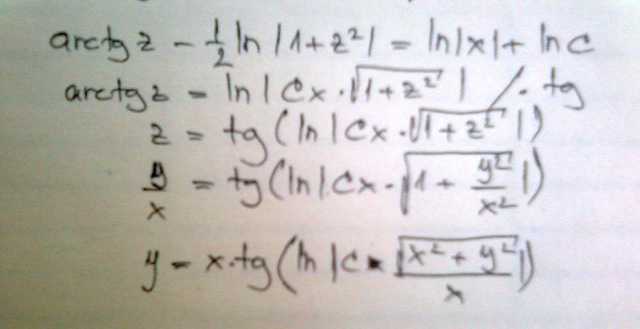 arctg z - 1/2 ln |1+z²| = ln|x| + ln c
arctg z = ln | Cx · √(1+z²) | / · tg
z = tg (ln | Cx · √(1+z²) |)
y/x = tg (ln | Cx · √(1 + y²/x²) |)
y = x · tg (ln | C · √(x² + y²)/x |)